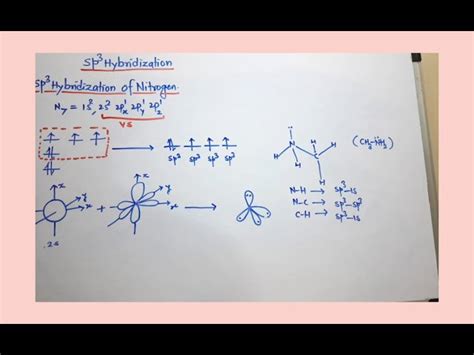 Sp³Hybridization
Sp³Hybridization of Nitrogen.
N₇ = 1s², 2s² 2pₓ¹ 2pᵧ¹ 2p_z¹
sp³ sp³ sp³ sp³
N H
H C H
H
N-H → sp³-1s
N-C → sp³-sp³
C-H → sp³-1s
z y x
+
z y x
2s